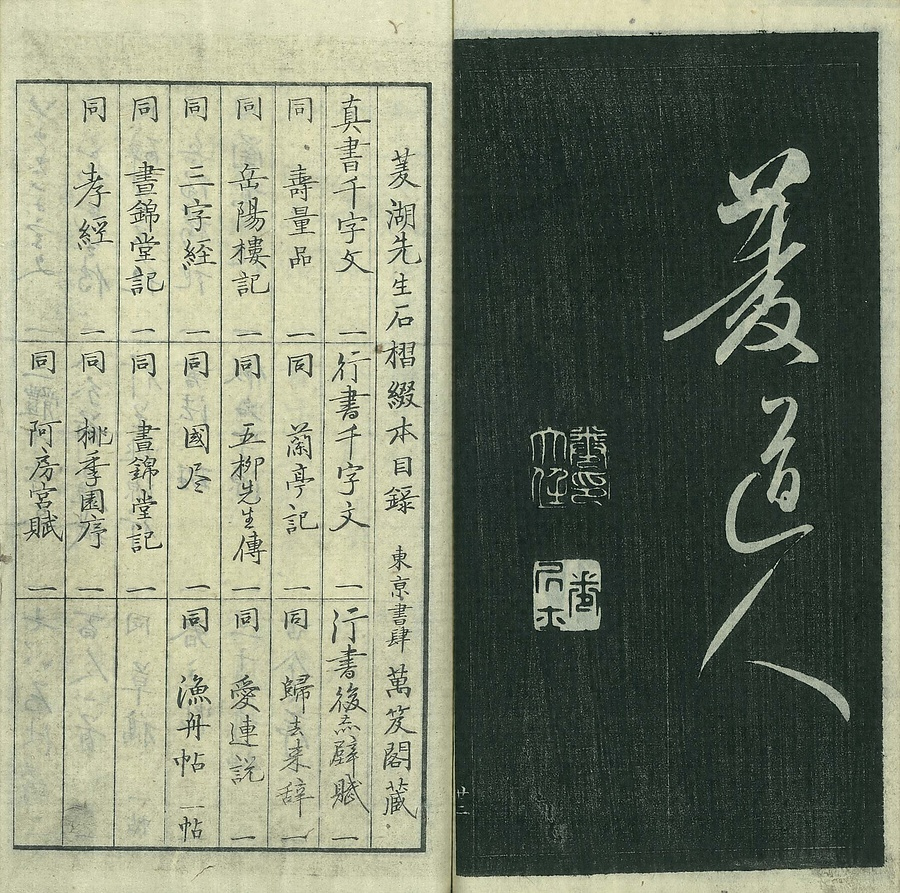 菱道人
卷印
大任
菱湖先生石摺綴本目録 東京書肆 萬笈閣藏
真書千字文 一 行書千字文 一 行書後赤壁賦 一
同 壽量品 一 同 蘭亭記 一 同 歸去来辞 一
同 岳陽樓記 一 同 五柳先生傳 一 同 愛連説 一
同 三字経 一 同 國尽 一 同 漁舟帖 一帖
同 晝錦堂記 一 同 晝錦堂記 一
同 孝經 一 同 桃李園序 一
同 阿房宮賦 一